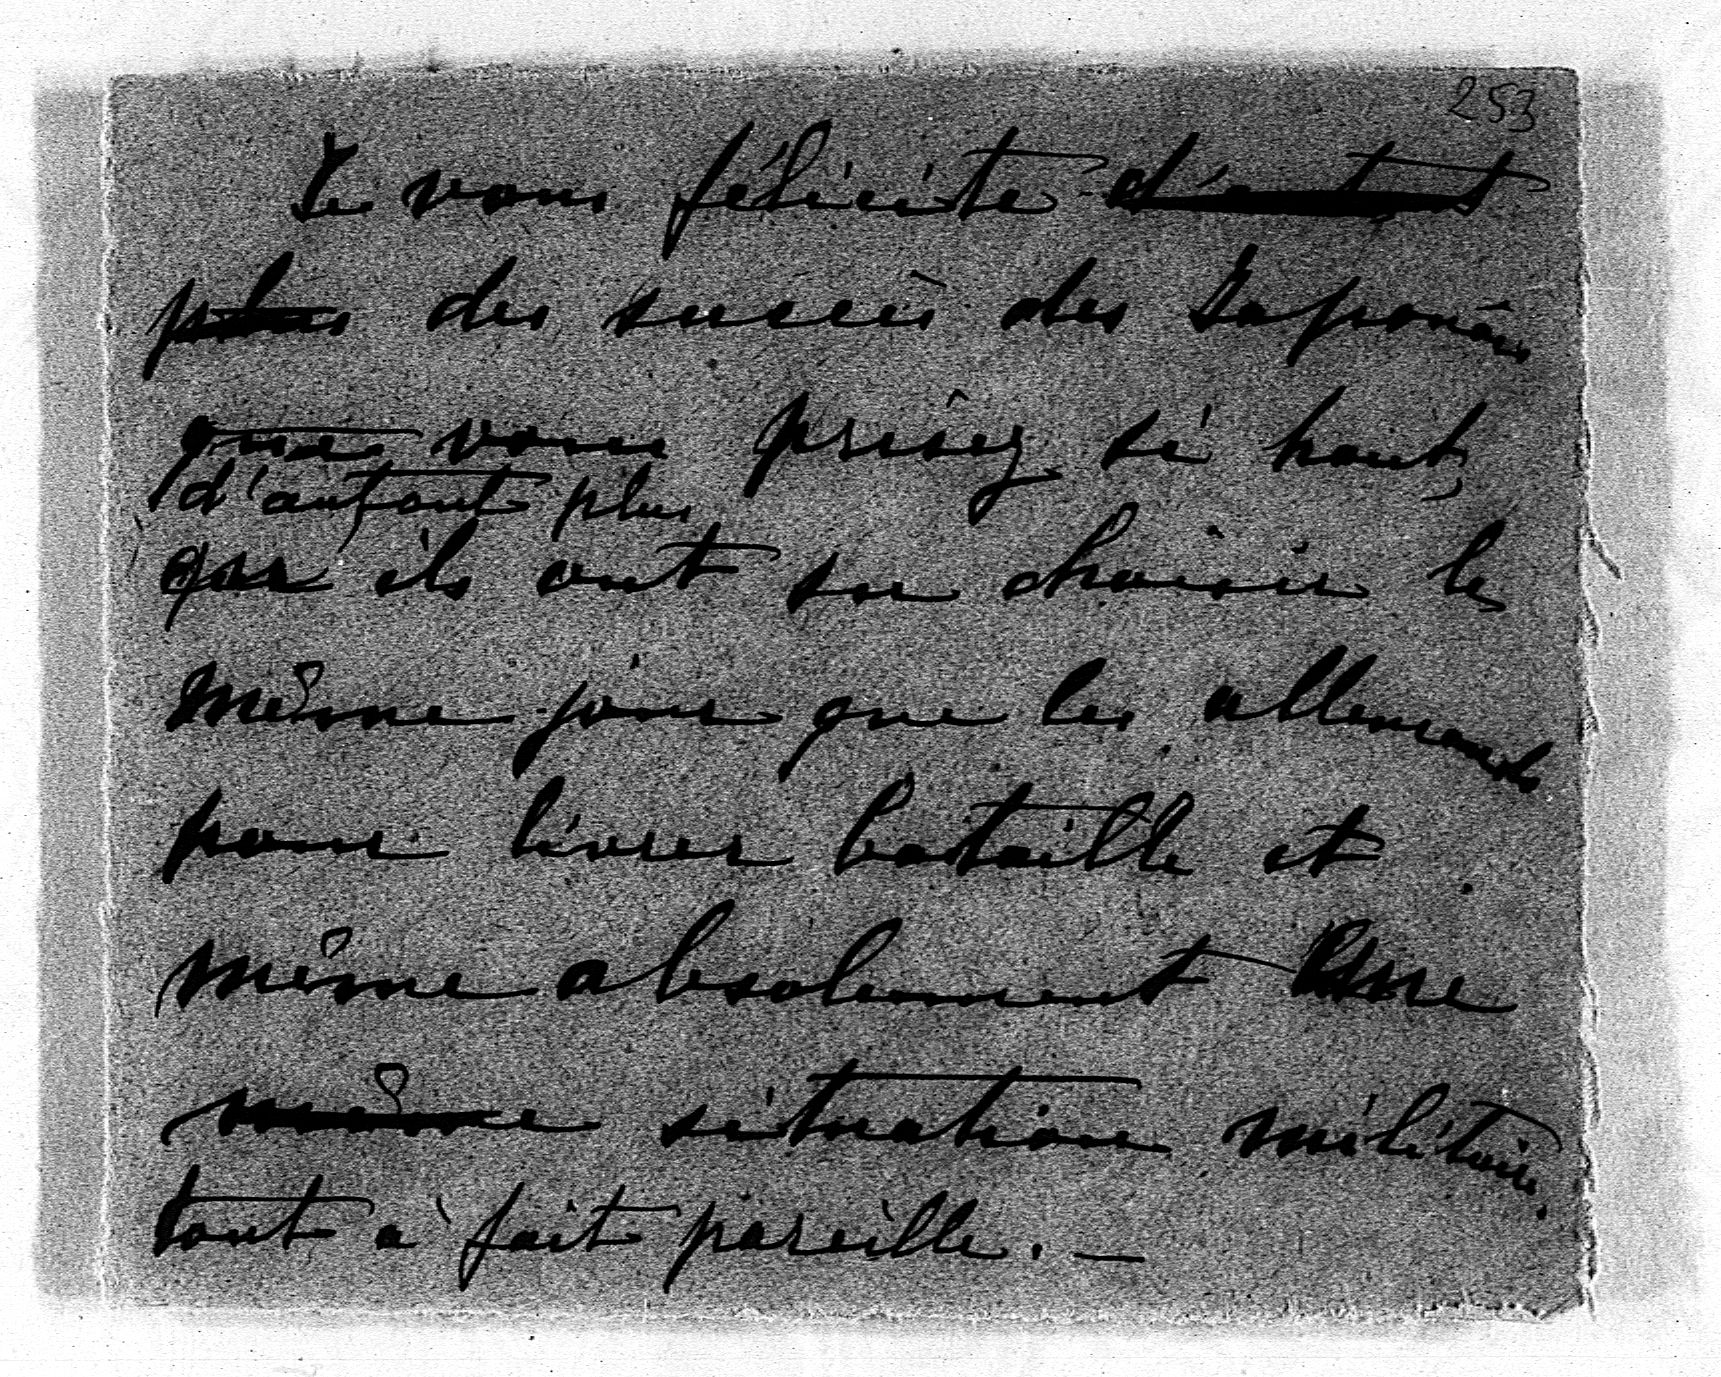 253
Je vous félicite d'autant
plus des succès des Japonais
que vous prisez si haut,
d'autant plus
que ils ont su choisir le
même jour que les allemands
pour livrer bataille et
même absolument une
même situation militaire
tout à fait pareille. —